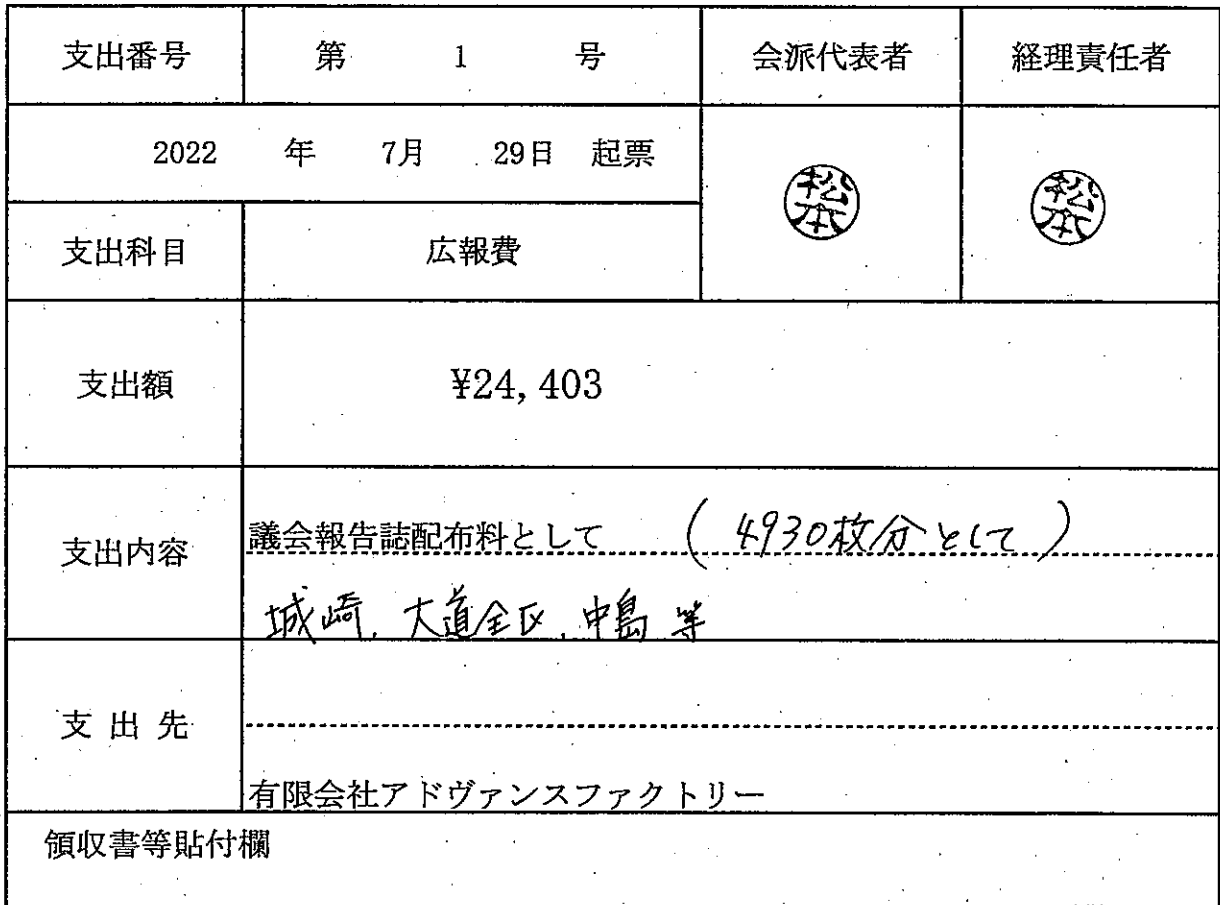 支出番号 第 1 号 会派代表者 経理責任者
2022 年 7月 29日 起票
松本 松本
支出科目 広報費
支出額 ¥24,403
支出内容 議会報告誌配布料として (4930枚分として)
城崎、大道全区、中島 等
支出先
有限会社アドヴァンスファクトリー
領収書等貼付欄